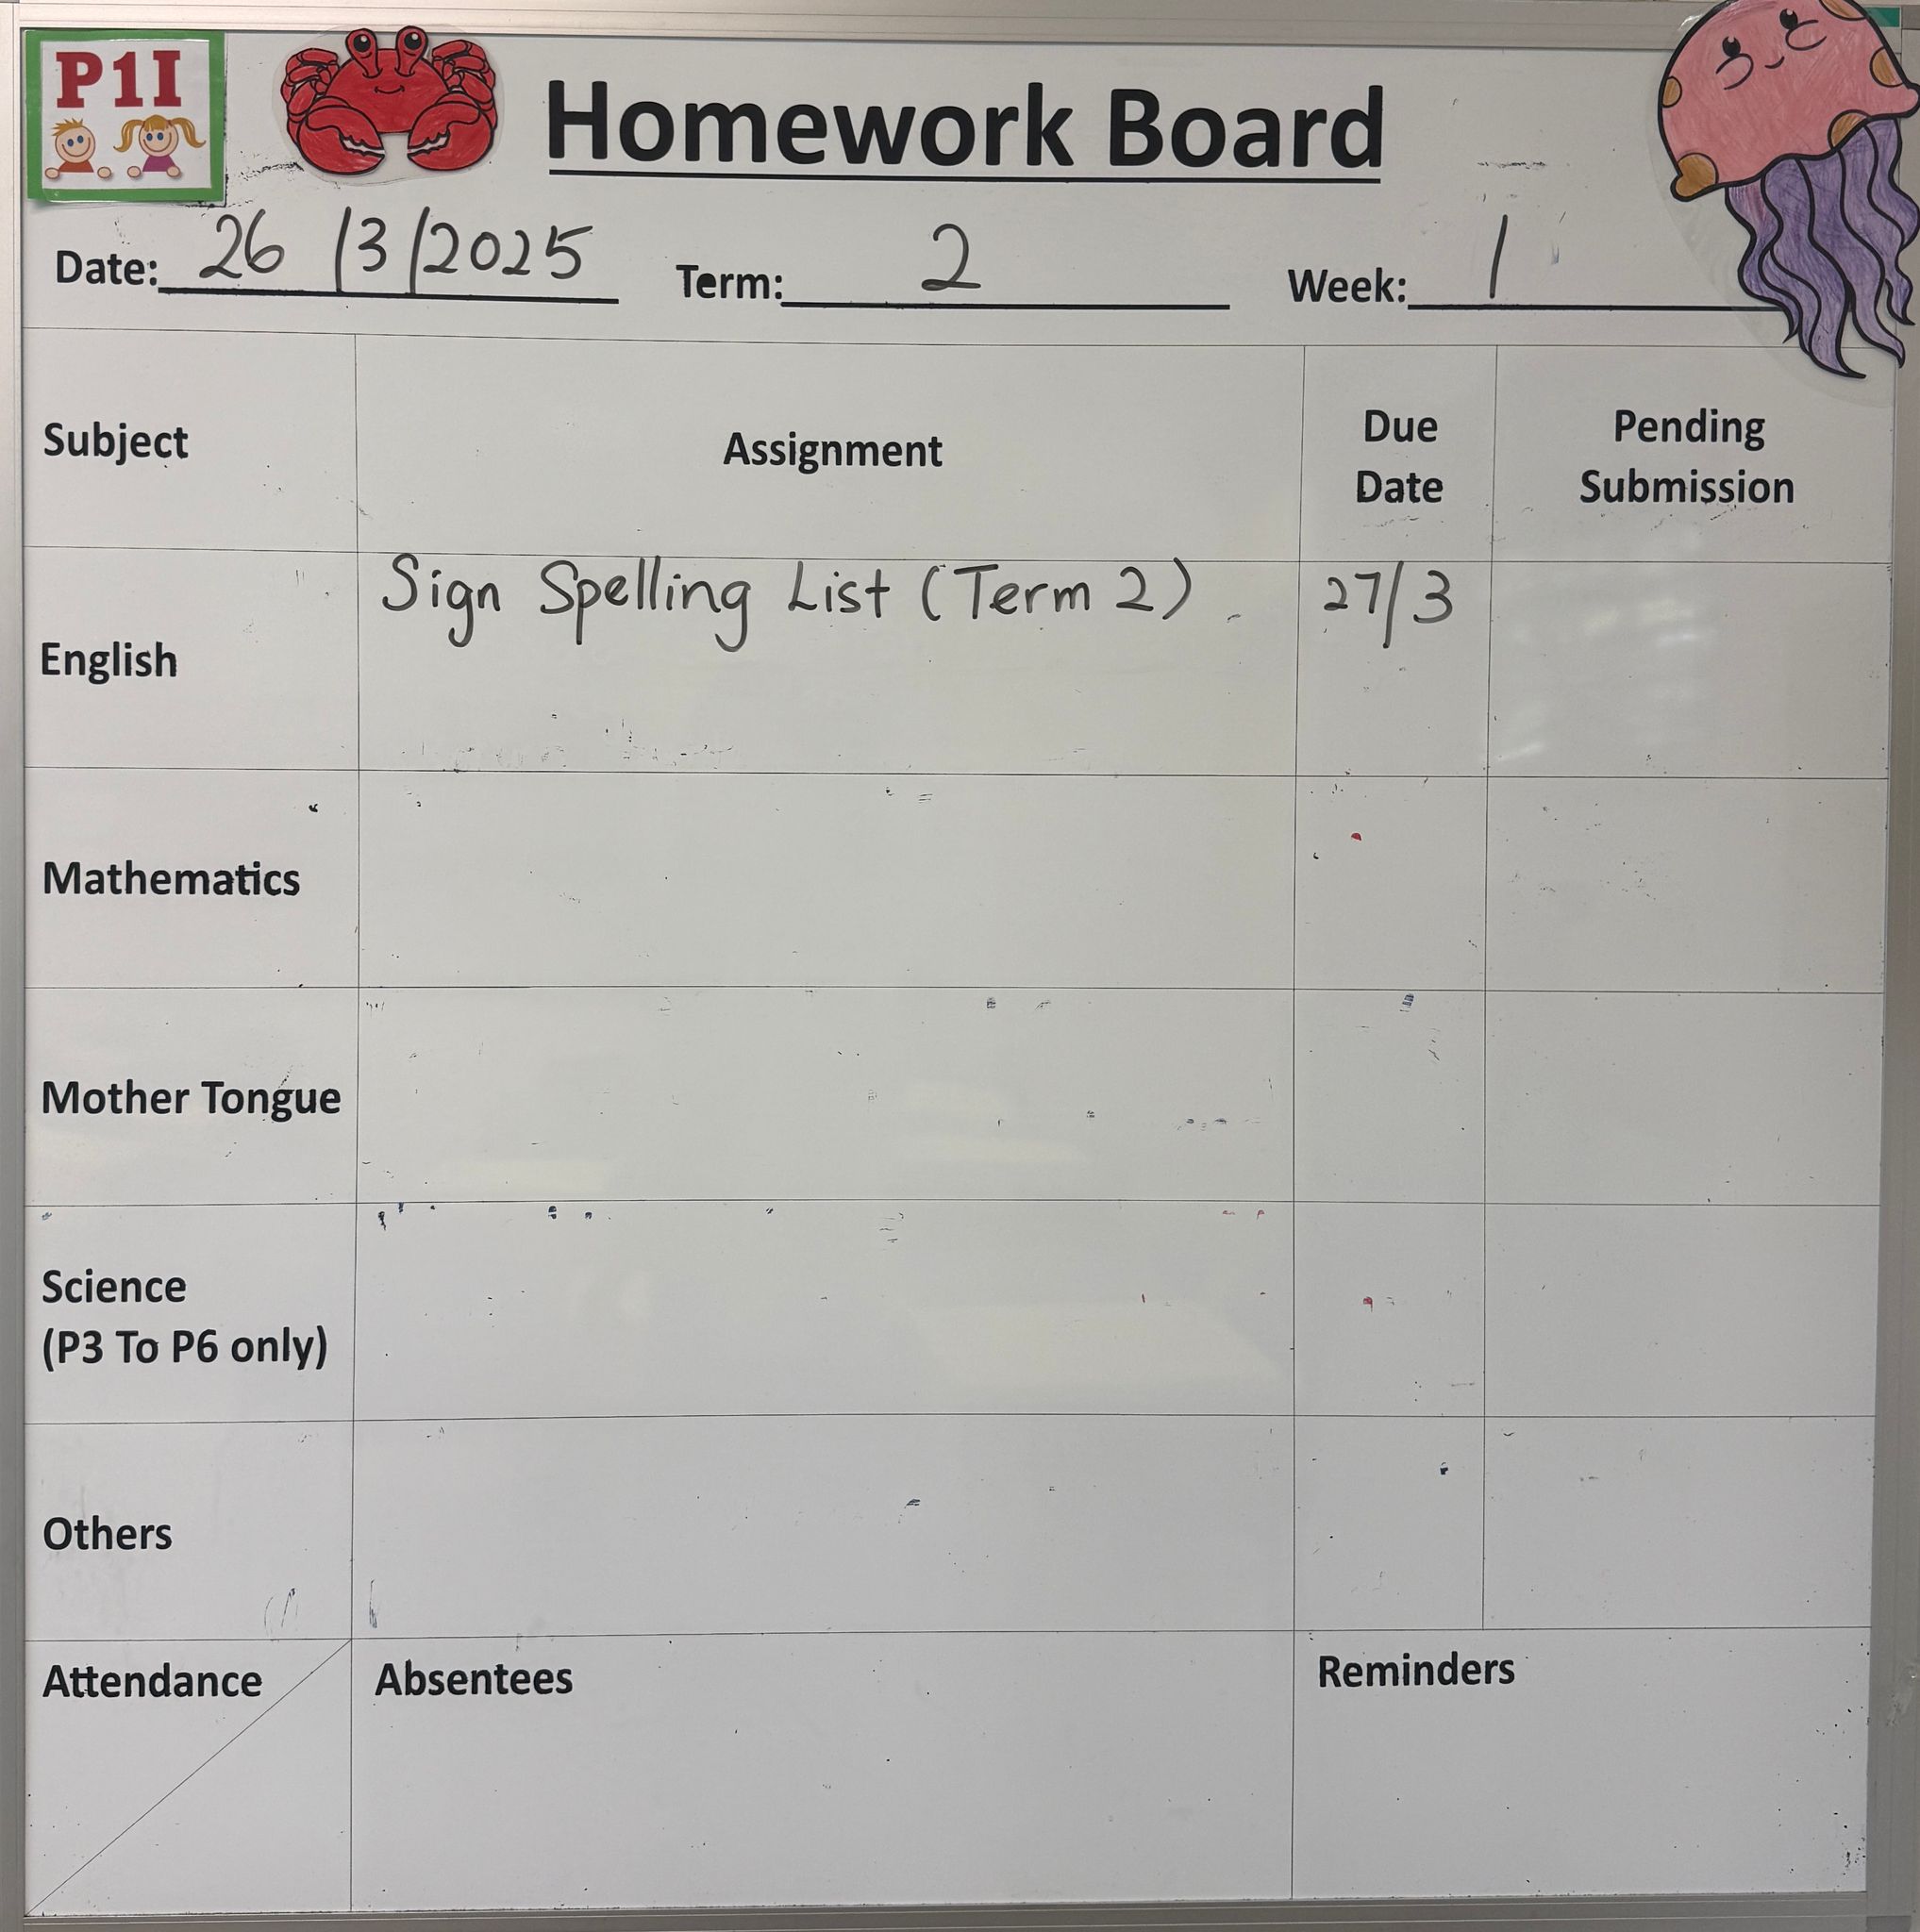 P1I
Homework Board
Date: 26/3/2025 Term: 2 Week: 1
Subject Assignment Due Date Pending Submission
English Sign Spelling List (Term 2). 27/3
Mathematics
Mother Tongue
Science
(P3 To P6 only)
Others
Attendance Absentees Reminders